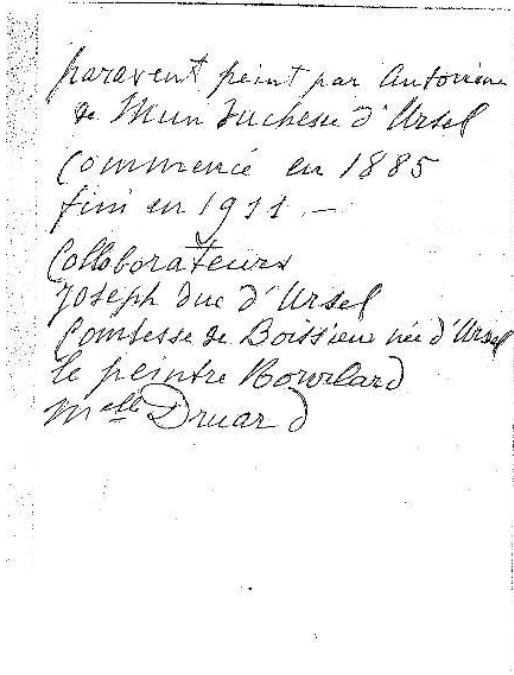 paravent peint par Antonine
de Mun duchesse d'Ursel
Commencé en 1885
fini en 1911.—
Colloborateurs
Joseph duc d'Ursel
Comtesse de Boissieu née d'Ursel
le peintre Bourlard
Melle Druard